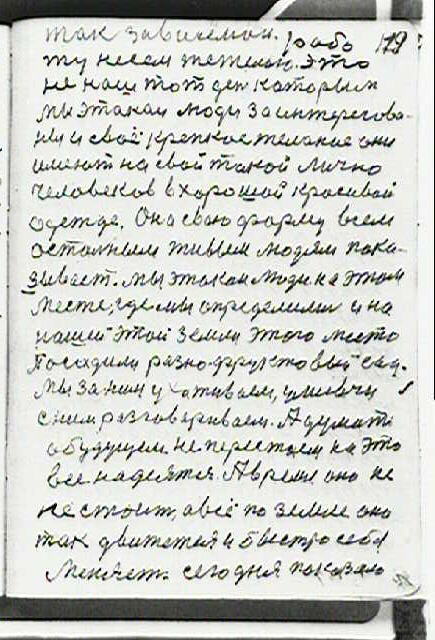 так зависемои. рабо 179
ту несем тяжелаю. это
не наш тот ден каторым
мы этакаи люди заинтересова-
ны и своё крепкое желание они
имеют на свой такой лично
человеков в хорошой красивой
одежде. Она свою форму всем
остальным живым людям пока-
зывает. мы этакаи люди на этом
месте, где мы определили и на
нашей этой земли этого место
посадили разно-фруктовый сад.
мы за ним ухаживаем,
с ним разговариваем. А думать
о будущем не перестаем на это
все надеятся. А время оно не
не стоит, а всё по земле оно
так движется и быстро себя
Меняет. сегодня показало